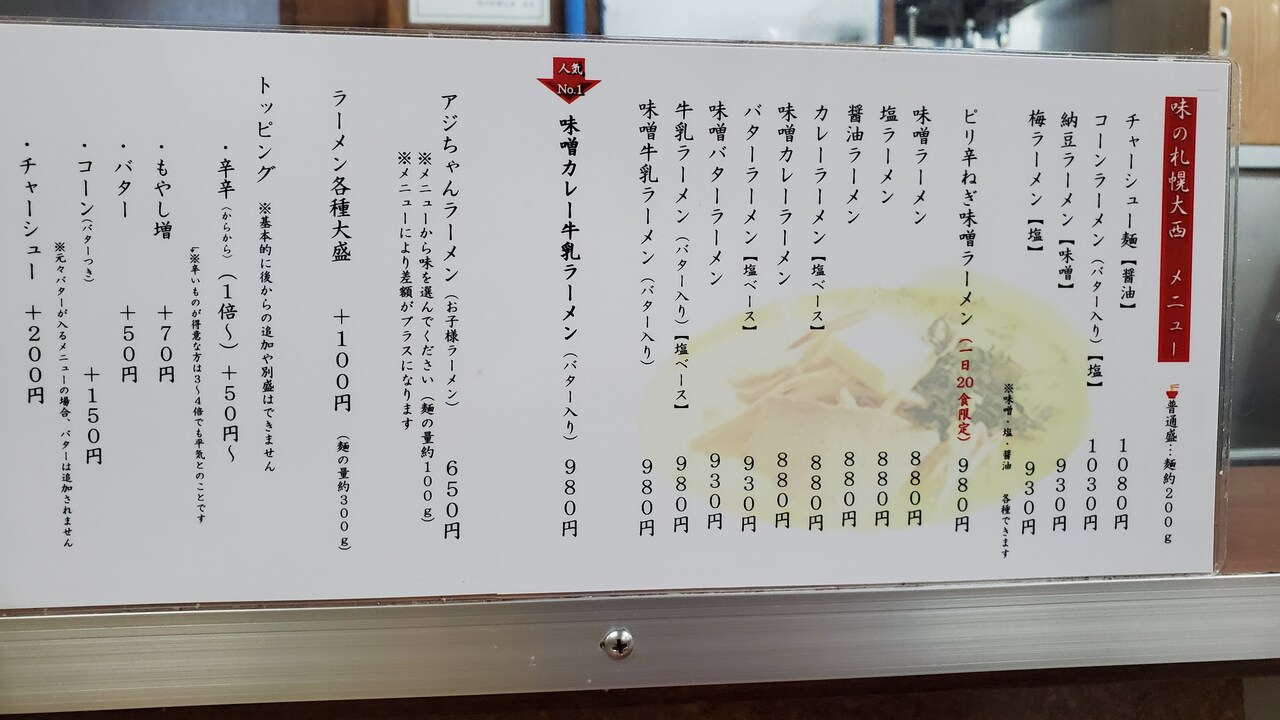 味の札幌大西 メニュー
普通盛…麺約200g
チャーシュー麺【醤油】 1080円
コーンラーメン(バター入り)【塩】 1030円
納豆ラーメン【味噌】 930円
梅ラーメン【塩】 930円
※味噌・塩・醤油 各種できます
ピリ辛ねぎ味噌ラーメン(一日20食限定) 980円
味噌ラーメン 880円
塩ラーメン 880円
醤油ラーメン 880円
カレーラーメン【塩ベース】 880円
味噌カレーラーメン 880円
バターラーメン【塩ベース】 930円
味噌バターラーメン 930円
牛乳ラーメン(バター入り)【塩ベース】 980円
味噌牛乳ラーメン(バター入り) 980円
人気
No.1
味噌カレー牛乳ラーメン(バター入り) 980円
アジちゃんラーメン(お子様ラーメン) 650円
※メニューから味を選んでください(麺の量約100g)
※メニューにより差額がプラスになります
ラーメン各種大盛 +100円 (麺の量約300g)
トッピング ※基本的に後からの追加や別盛はできません
・辛辛(からから)(1倍~)+50円~
↳※辛いものが得意な方は3~4倍でも平気とのことです
・もやし増 +70円
・バター +50円
・コーン(バターつき) +150円
※元々バターが入るメニューの場合、バターは追加されません
・チャーシュー +200円